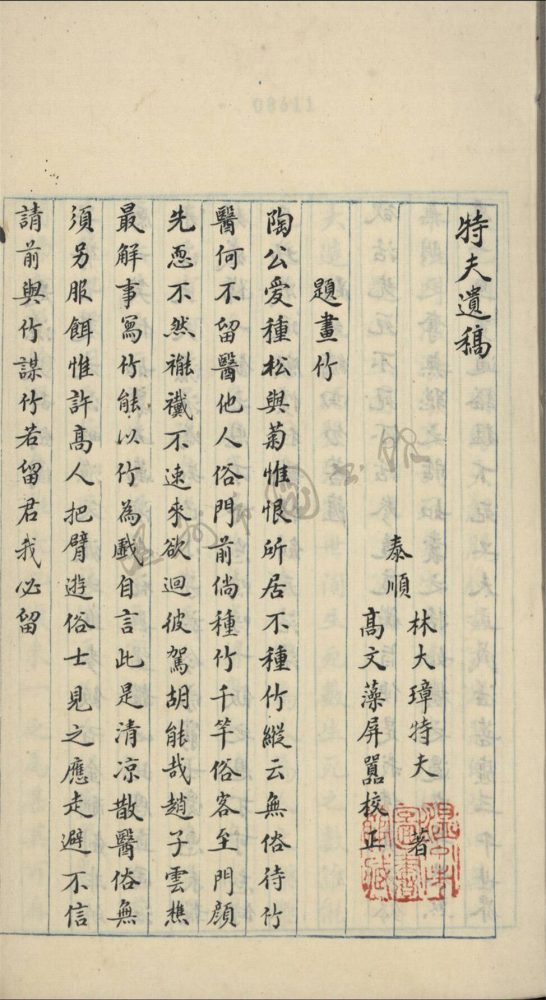 特夫遺稿
泰順
林大璋特夫 著
高文藻屏 校正
題畫竹
陶公愛種松與菊惟恨所居不種竹縱云無俗待竹
醫何不留醫他人俗門前倘種竹千竿俗客至門顏
先恧不然褦襶不速來欲迴彼駕胡能哉趙子雲樵
最解事寫竹能以竹為戲自言此是清凉散醫俗無
須另服餌惟許高人把臂遊俗士見之應走避不信
請前與竹謀竹若留君我必留
11680